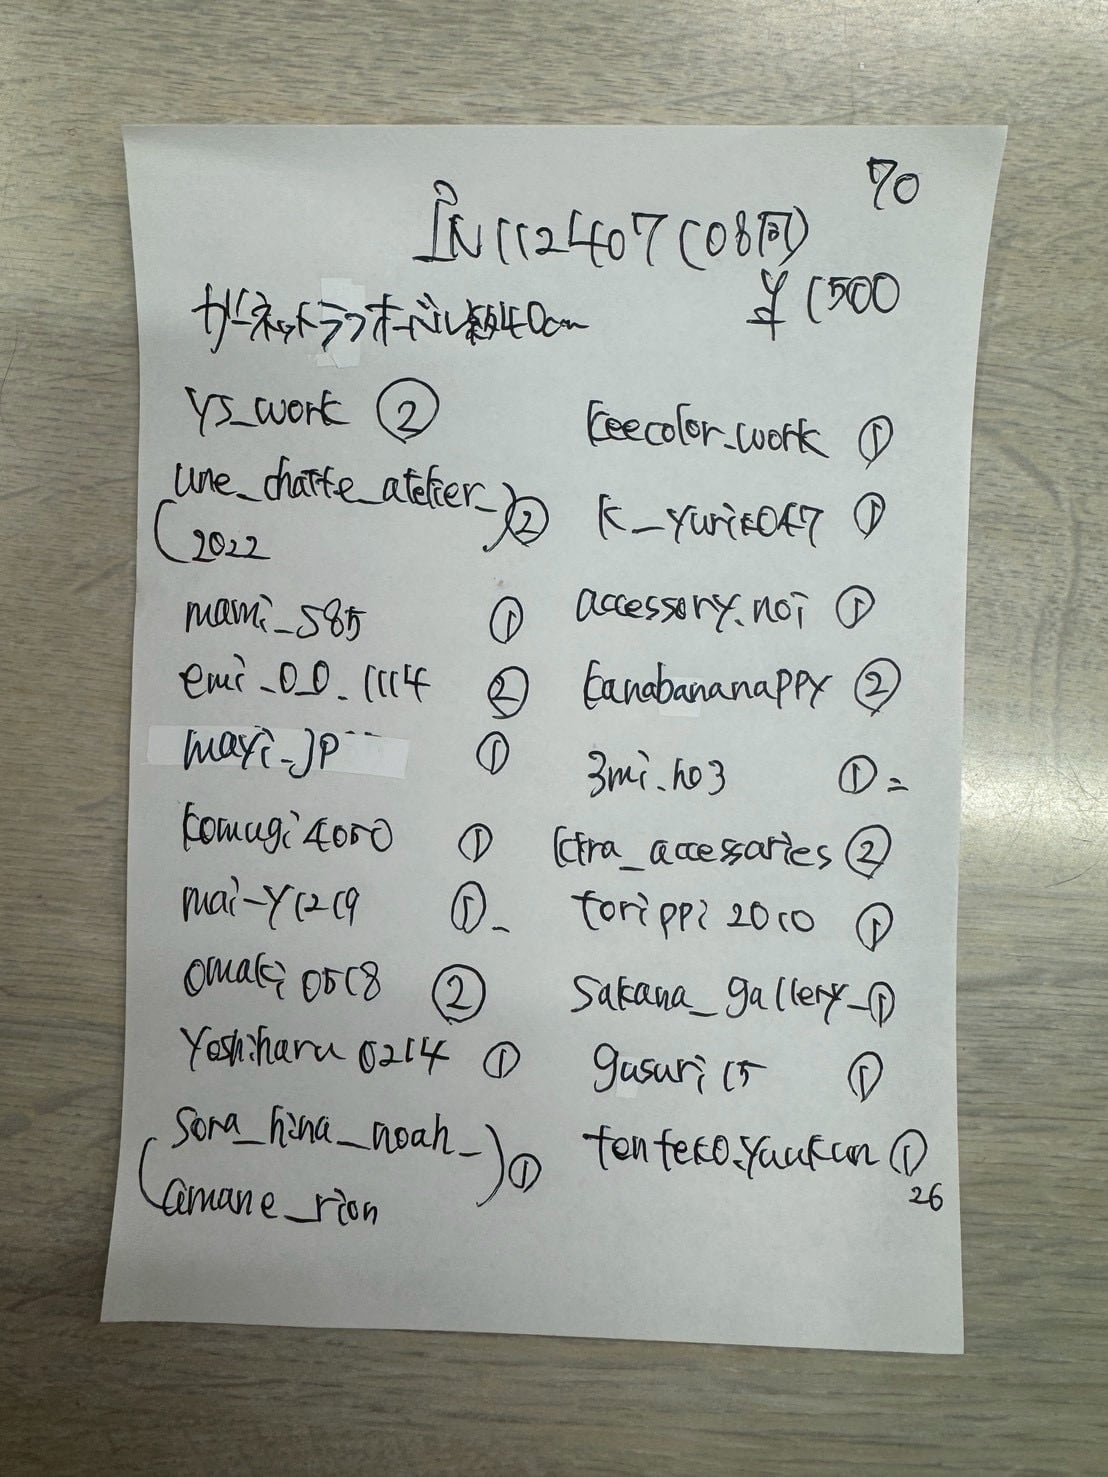 70
IN112407(08同)
¥1500
ガーネットラフオーバル約40cm
ys_work ②
(une_chatte_atelier_
2022) ②
mami_585 ①
emi_0_0_1114 ②
mayi_jp ①
komugi4050 ①
mai-y1219 ①
omaki0518 ②
Yoshiharu0214 ①
(sora_hina_noah_
amane_rion) ①
keecolor_work ①
k_yurie047 ①
accessory.noi ①
kanabananappy ②
3mi.ho3 ①
ktra_accessaries ②
torippi2010 ①
sakana_gallery_ ①
gusuri15 ①
tenteko.yuukun ①
26